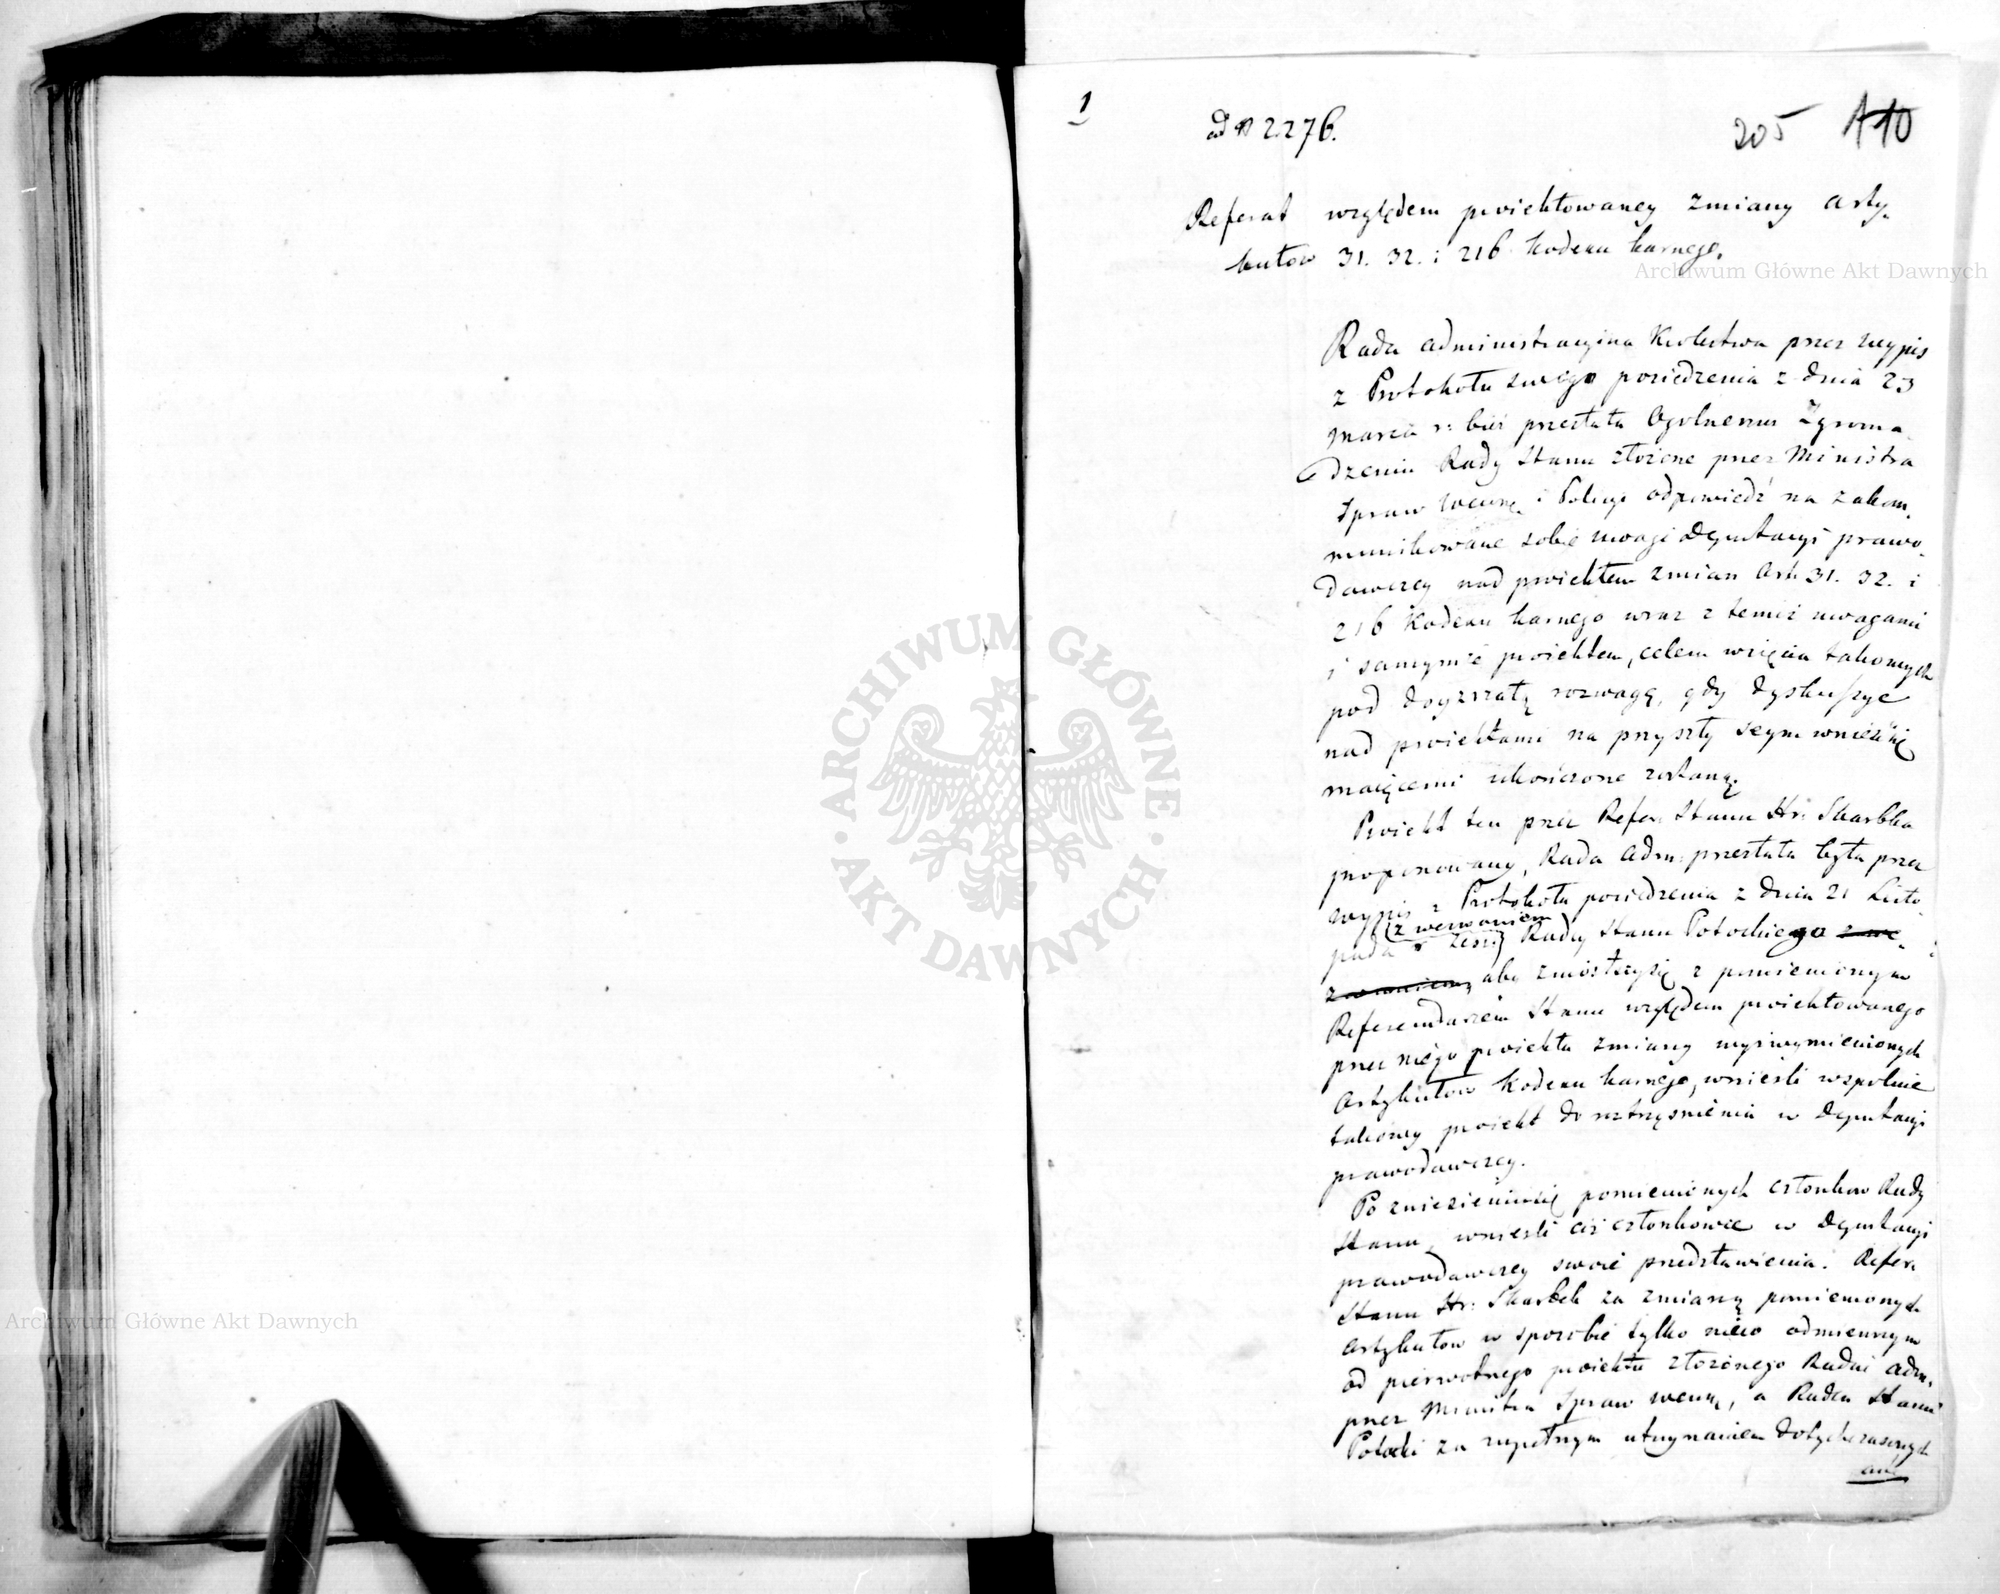 1
ad N 2276.
205 110
Referat względem proiektowaney zmiany arty„
kułow 31. 32. i 216 Kodexu karnego.
Rada administracyina Krolestwa przez wypis
z Protokołu swego posiedzenia z dnia 23
marca r: bież przesłała Ogolnemu Zgroma„
dzeniu Rady Stanu złożone przez Ministra
Spraw Wewnę i Policyi odpowiedź na zakom„
munikowane sobie uwagi Deputacyi prawo„
dawczey nad proiektem zmian Art: 31. 32. i
216 Kodexu karnego wraz z temiż uwagami
i samymże proiektem, celem wzięcia takowych
pod doyrzałą rozwagę, gdy dyskussye
nad proiektami na przyszły seym wnieść się
maiącemi ukończone zostaną.
Proiekt ten przez Refer: Stanu Hr: Skarbka
proponowany, Rada Adm: przesłała była przez
wypis z Protokołu posiedzenia z dnia 21 Listo„
pada (z wezwaniem Rady Stanu Potockiego z we„
zwaniem, aby zniosłszy się z pomienionym
Referendarzem Stanu względem proiektowanego
przez niego proiektu zmiany wyżwymienionych
Artykułow Kodexu karnego, wnieśli wspolnie
takowy proiekt do roztrząśnienia w Deputacyi
prawodawczey.
Po zniesieniu się pomienionych członkow Rady
Stanu, wnieśli ciż członkowie w Deputacyi
prawodawczey swoie przedstawienia: Refer:
Stanu Hr: Skarbek za zmianą pomienionych
artykułow w sposobie tylko nieco odmiennym
od pierwotnego proiektu złożonego Radzie adm:
przez Ministra Spraw Wewnę, a Radca Stanu
Potocki za zupełnym utrzymaniem dotychczasowych
Archiwum Główne Akt Dawnych
Archiwum Główne Akt Dawnych
ARCHIWUM GŁÓWNE AKT DAWNYCH